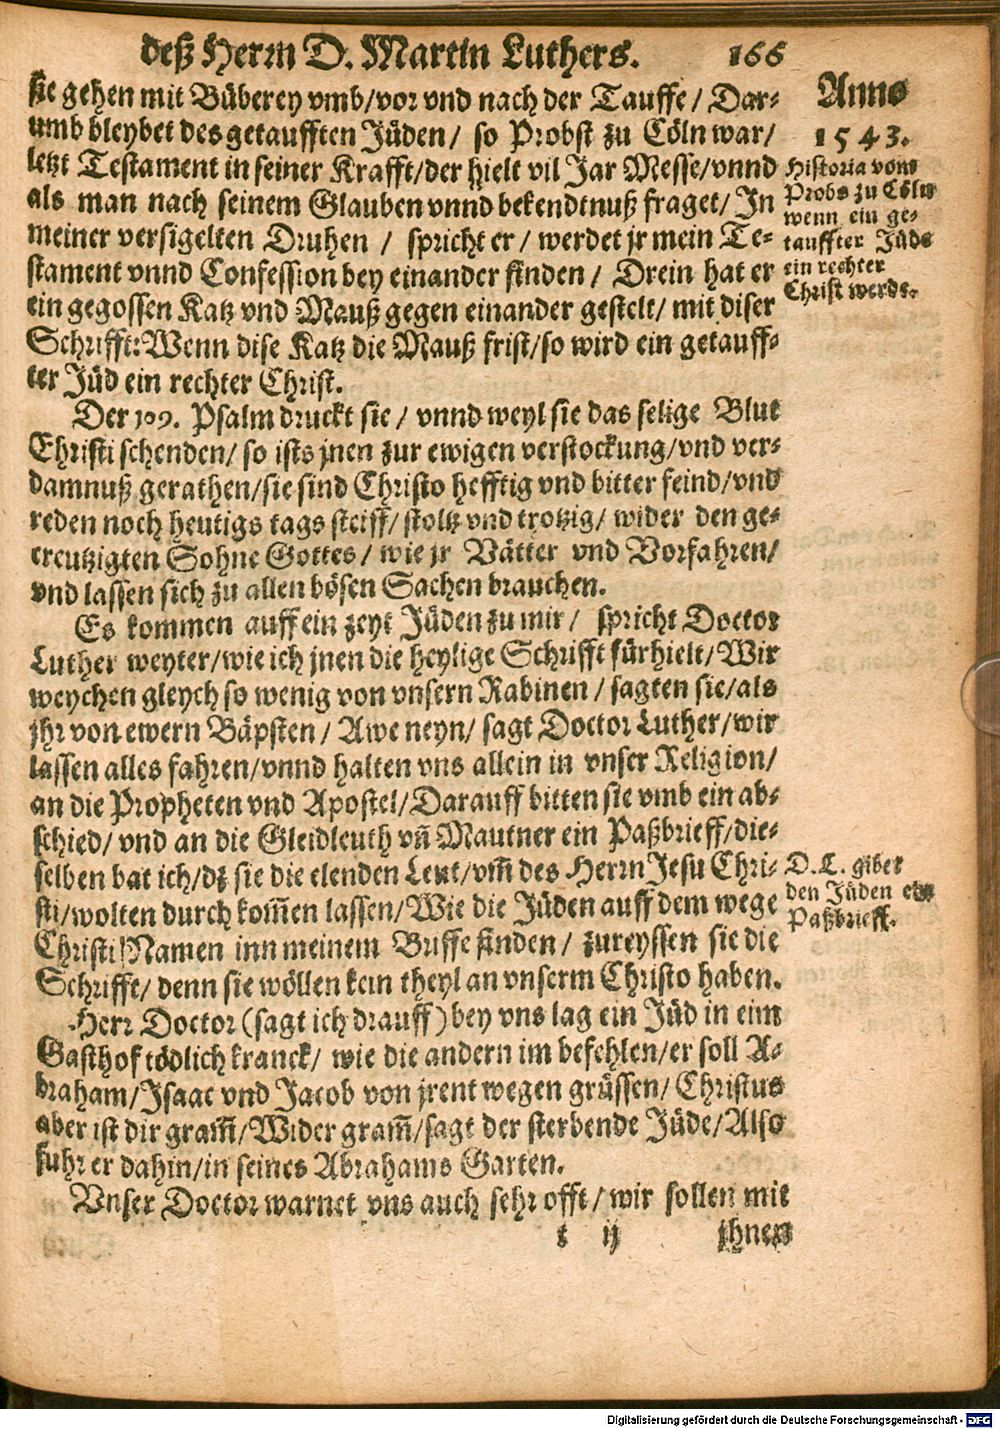 deß Herrn D. Martin Luthers. 166
sie gehen mit Büberey vmb/vor vnd nach der Tauffe/ Dar-
umb bleybet des getaufften Jüden/ so Probst zu Cöln war/
letzt Testament in seiner Krafft/der hielt vil Jar Messe/vnnd
als man nach seinem Glauben vnnd bekendtnuß fraget/ In
meiner versigelten Druhen / spricht er/ werdet jr mein Te-
stament vnnd Confession bey einander finden/ Drein hat er
ein gegossen Katz vnd Mauß gegen einander gestelt/ mit diser
Schrifft: Wenn dise Katz die Mauß frist/so wird ein getauff-
ter Jüd ein rechter Christ.
Anno
1543.
Historia vom
Probs zu Cöln
wenn ein ge-
tauffter Jüde
ein rechter
Christ werde.
Der 109. Psalm druckt sie/ vnnd weyl sie das selige Blut
Christi schenden/ so ists jnen zur ewigen verstockung/vnd ver-
damnuß gerathen/sie sind Christo hefftig vnd bitter feind/vnd
reden noch heutigs tags steiff/ stoltz vnd trotzig/ wider den ge-
creutzigten Sohne Gottes/ wie jr Vätter vnd Vorfahren/
vnd lassen sich zu allen bösen Sachen brauchen.
Es kommen auff ein zeyt Jüden zu mir/ spricht Doctor
Luther weyter/wie ich jnen die heylige Schrifft fürhielt/Wir
weychen gleych so wenig von vnsern Rabinen/ sagten sie/als
jhr von ewern Bäpsten/ Awe neyn/ sagt Doctor Luther/wir
lassen alles fahren/vnnd halten vns allein in vnser Religion/
an die Propheten vnd Apostel/Darauff bitten sie vmb ein ab-
schied/ vnd an die Gleidleuth vn̄ Mautner ein Paßbrieff/die-
selben bat ich/dz sie die elenden Leut/vm̄ des Herrn Jesu Chri-
sti/wolten durch kom̄en lassen/Wie die Jüden auff dem wege
Christi Namen inn meinem Briffe finden/ zureyssen sie die
Schrifft/ denn sie wöllen kein theyl an vnserm Christo haben.
D. L. gibet
den Jüden ein
Paßbrieff.
Herr Doctor (sagt ich drauff) bey vns lag ein Jüd in eim
Gasthof tödlich kranck/ wie die andern im befehlen/er soll A-
braham/Isaac vnd Jacob von jrent wegen grüssen/ Christus
aber ist dir gram̄/Wider gram̄/sagt der sterbende Jüde/Also
fuhr er dahin/in seines Abrahams Garten.
Vnser Doctor warnet vns auch sehr offt/ wir sollen mit
t ij jhnen
Digitalisierung gefördert durch die Deutsche Forschungsgemeinschaft - DFG